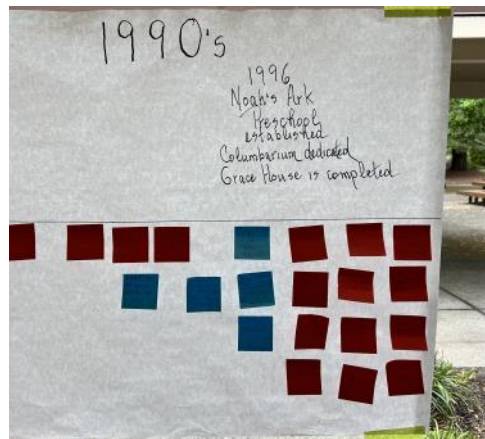 1990's
1996
Noah's Ark
Preschool
established
Columbarium dedicated
Grace House is completed